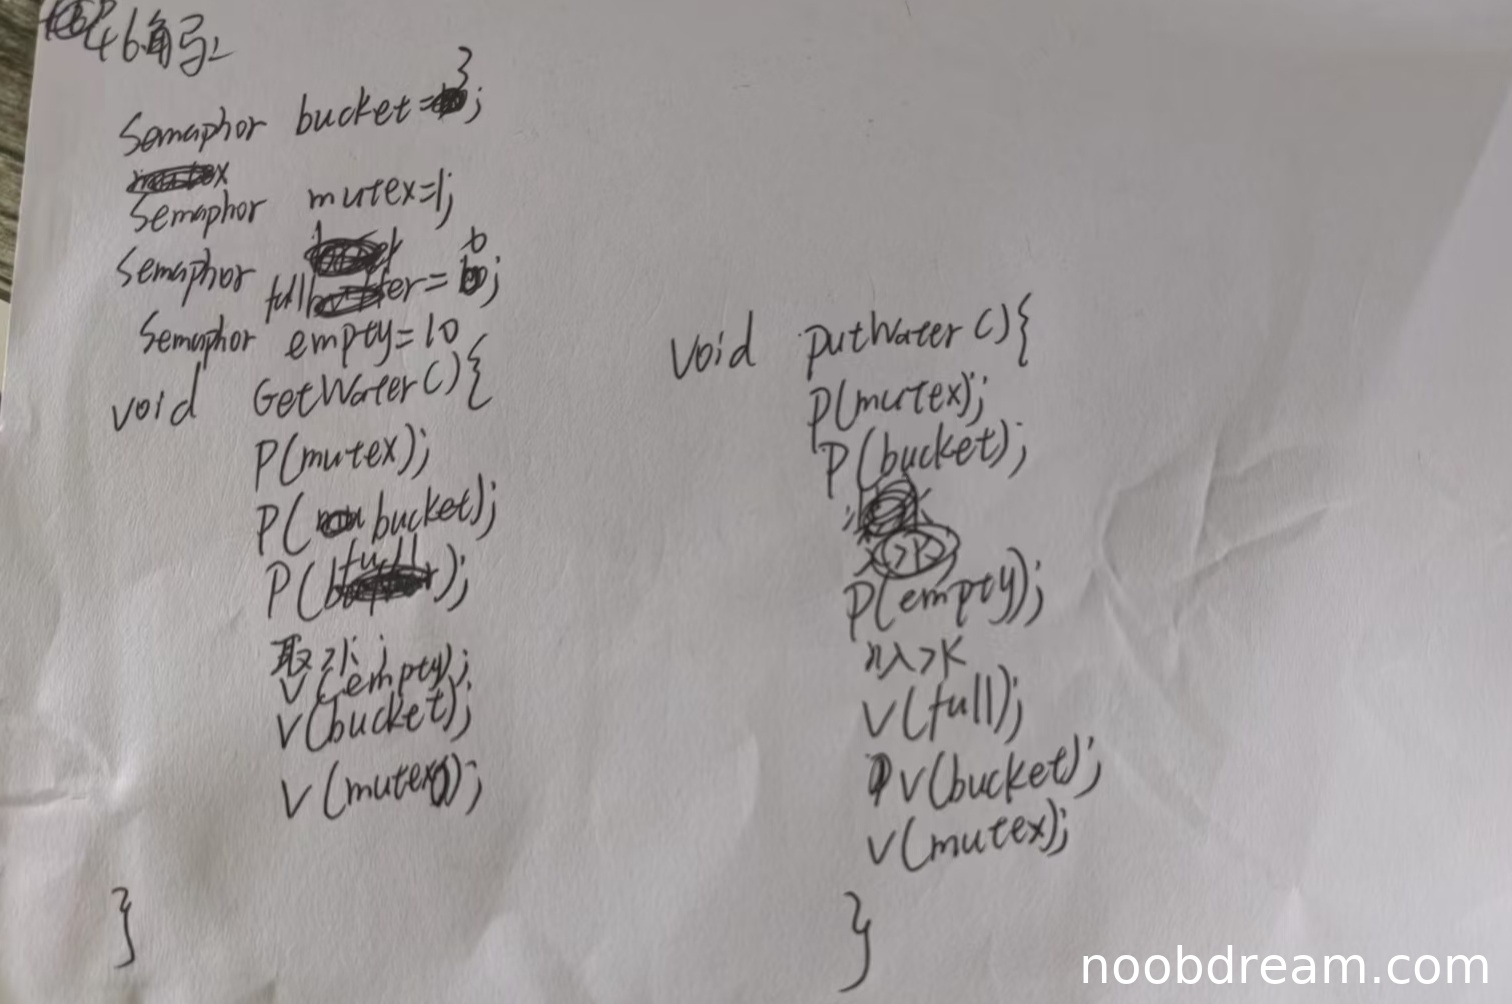 46解
Semaphor bucket=3;
Semaphor mutex=1;
Semaphor full=0;
Semaphor empty=10
void GetWater(){
P(mutex);
P(bucket);
P(full);
取水;
V(empty);
V(bucket);
V(mutex);
}
void putWater(){
P(mutex);
P(bucket);
P(empty);
入水
V(full);
V(bucket);
V(mutex);
}
noobdream.com